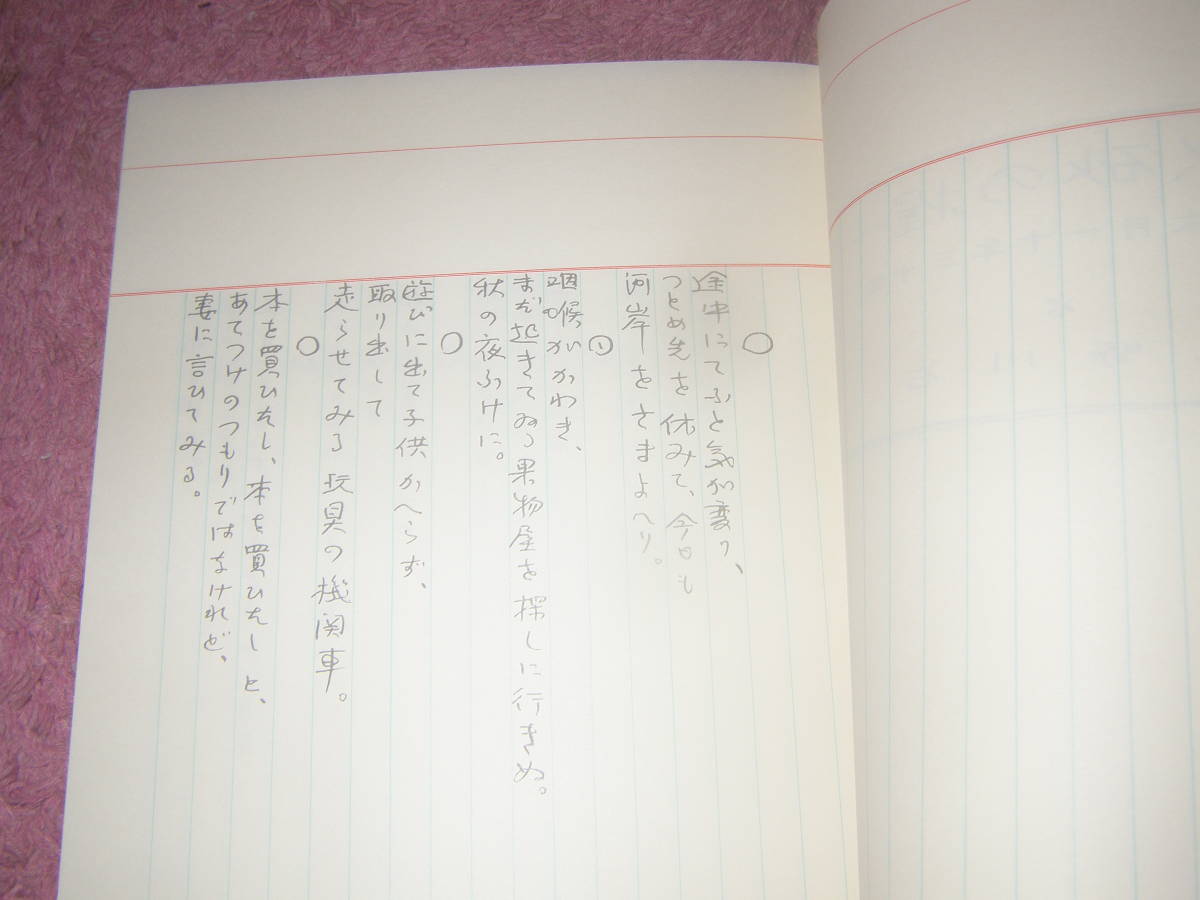 ○
途中にてふと気が変り、
つとめ先を休みて、今日も
河岸をさまよへり。
○
咽喉がかわき、
まだ起きてゐる果物屋を探しに行きぬ。
秋の夜ふけに。
○
遊びに出て子供かへらず、
取り出して
走らせてみる玩具の機関車。
○
本を買ひたし、本を買ひたしと、
あてつけのつもりではなけれど、
妻に言ひてみる。